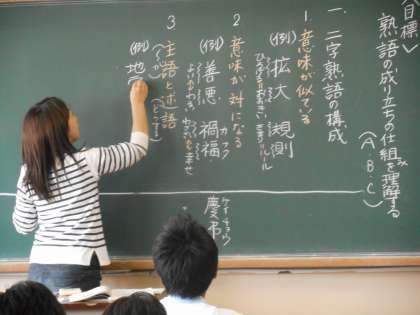 (目標)
熟語の成り立ちの仕組みを理解する
(A・B・C)
一、二字熟語の構成
1. 意味が似ている
(例) 拡大 規則
ひろげる おおきい きまり ルール
2 意味が対になる
カフク ケイチョウ
(例) 善悪 禍福 慶弔
よい わるい わざわい 幸せ
3. 主語と述語
(〜が) (どうする)
(例) 地